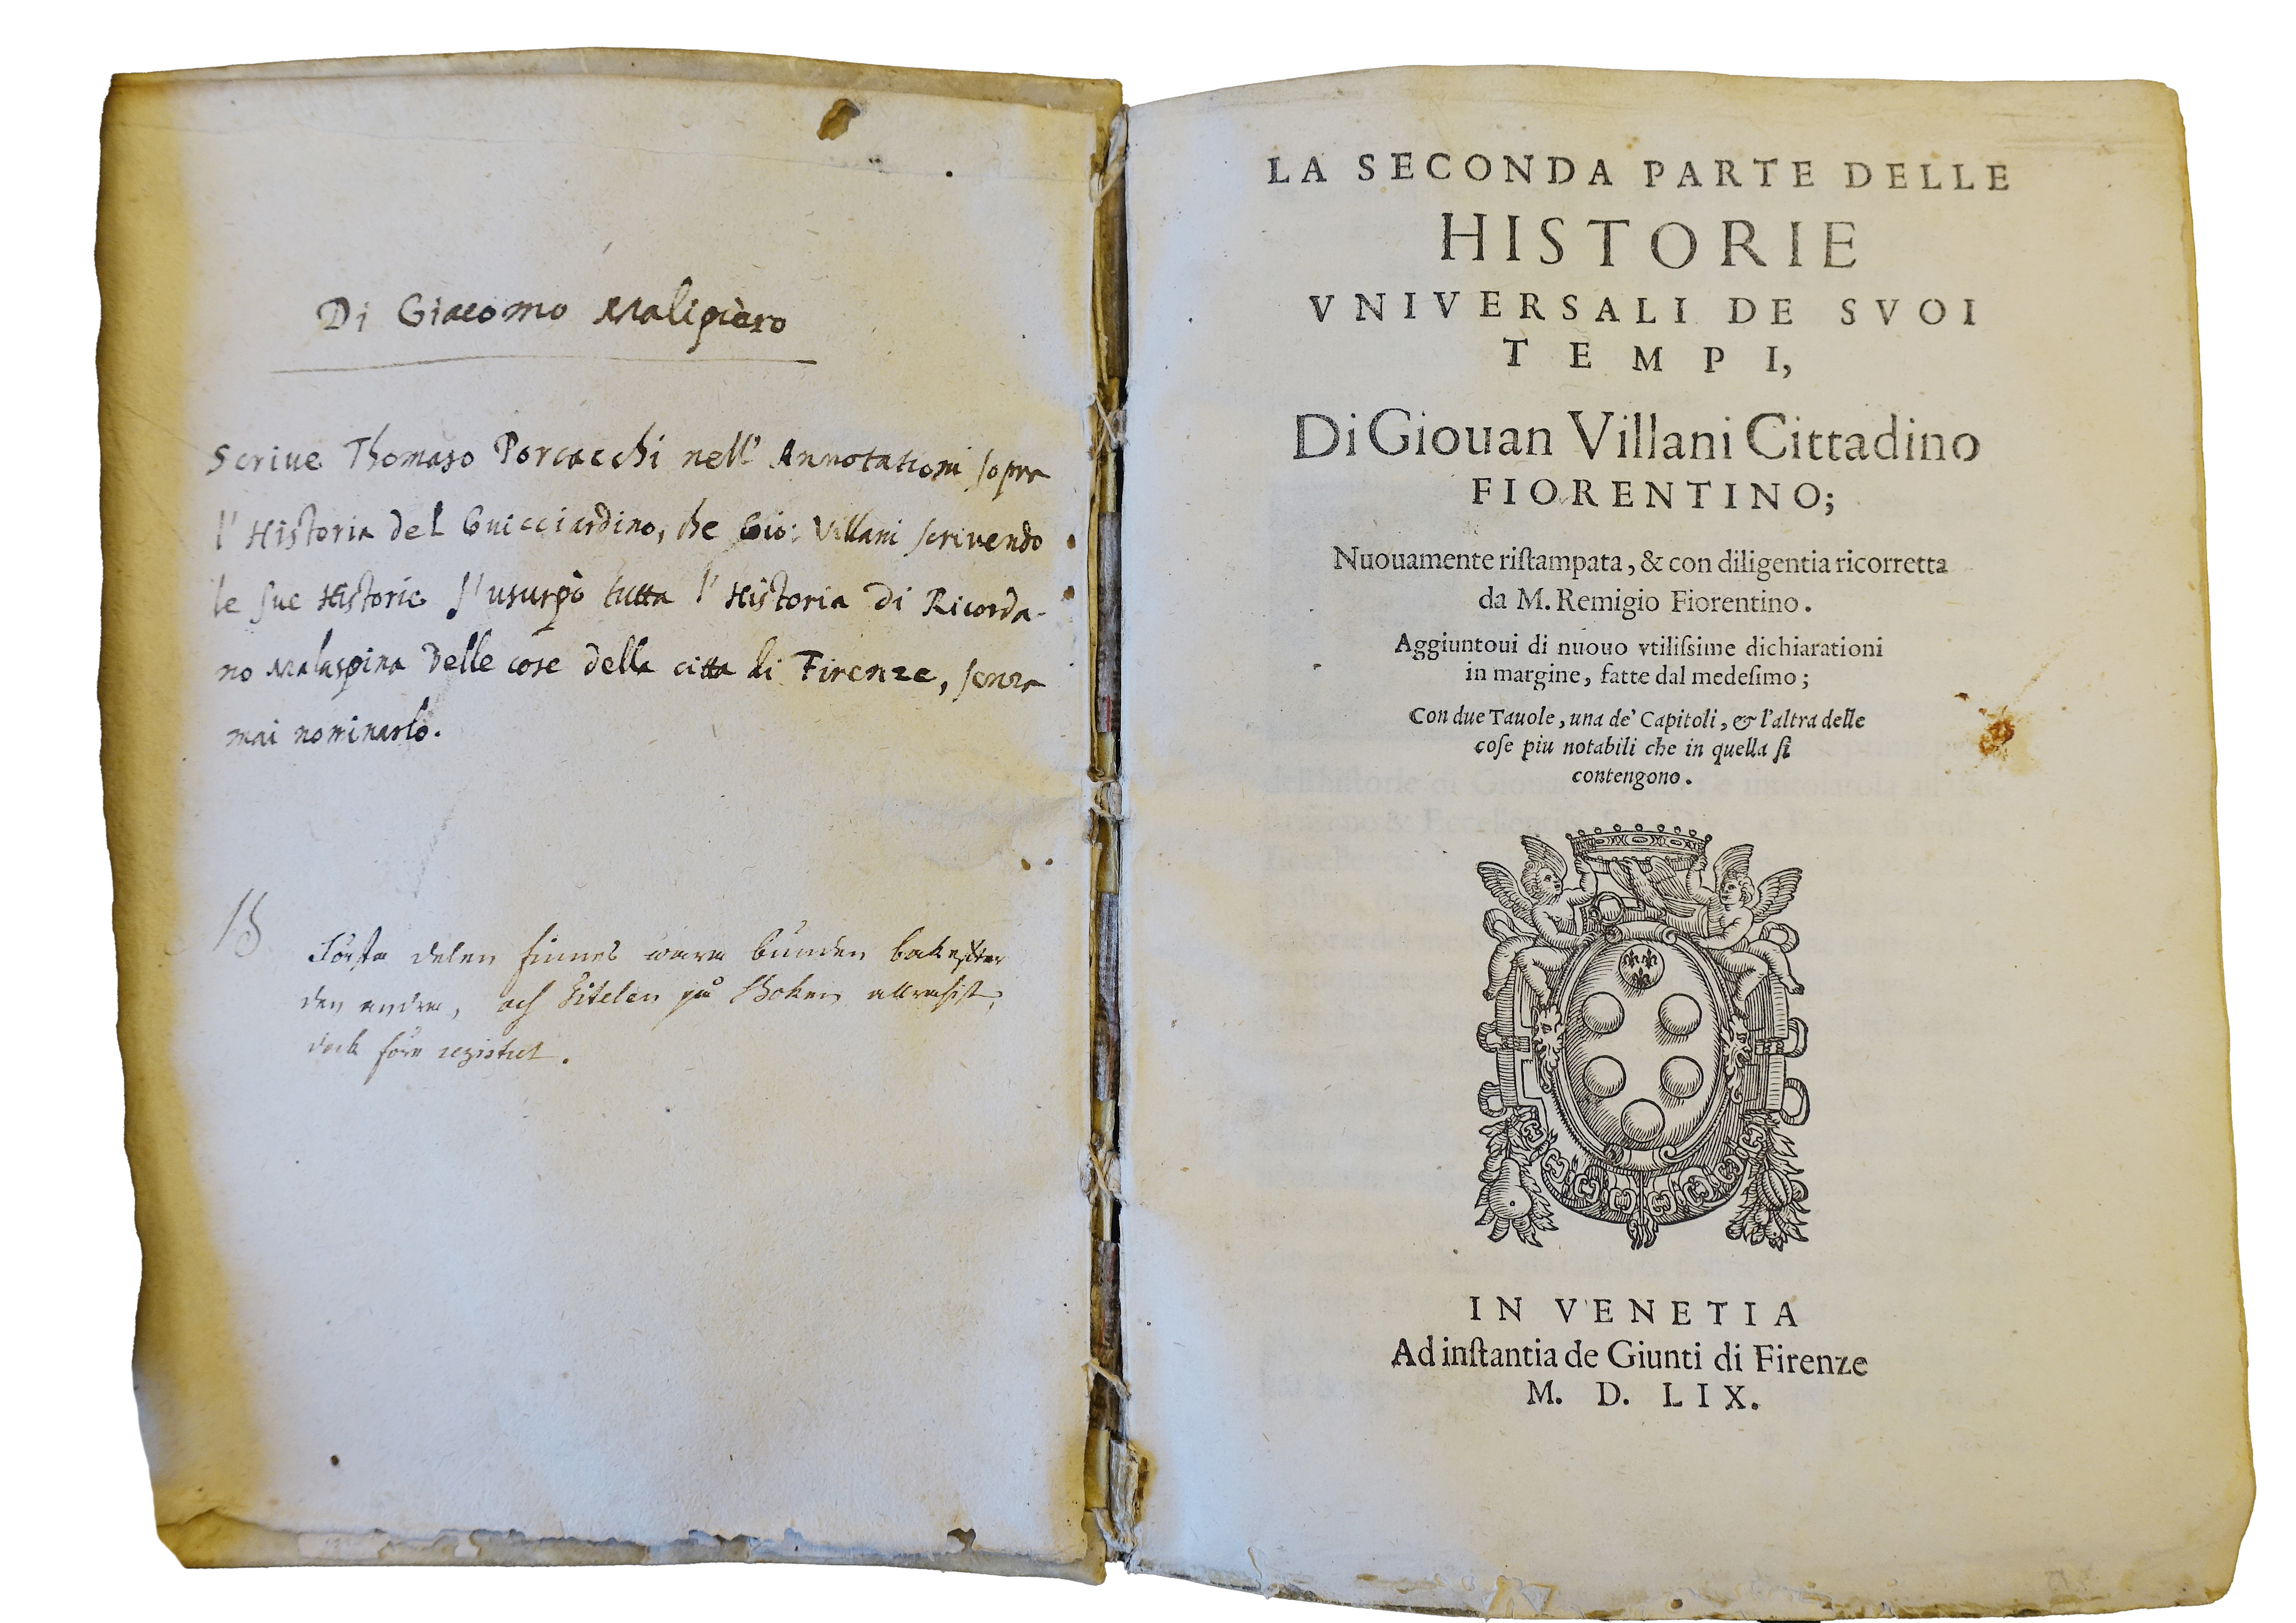 Di Giacomo Malipiero
Scriue Thomaso Porcacchi nell' Annotationi sopra
l' Historia del Guicciardino, che Gio: Villani scrivendo
le sue Historie s' usurpò tutta l' Historia di Ricorda-
no Malaspina delle cose della citta di Firenze, senza
mai nominarlo.
Första delen finnes wara bunden bakefter
den andra, och Titelen på Boken allrasist,
dock före registret.
LA SECONDA PARTE DELLE
HISTORIE
VNIVERSALI DE SVOI
TEMPI,
Di Giouan Villani Cittadino
FIORENTINO;
Nuouamente riſtampata, & con diligentia ricorretta
da M. Remigio Fiorentino.
Aggiuntoui di nuouo vtiliſsime dichiarationi
in margine, fatte dal medeſimo;
Con due Tauole, una de' Capitoli, & l'altra delle
coſe piu notabili che in quella ſi
contengono.
IN VENETIA
Ad inſtantia de Giunti di Firenze
M. D. LIX.